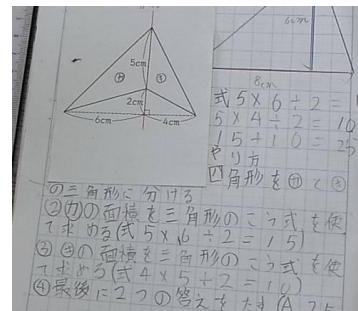 6cm
8cm
5cm
か
き
2cm
6cm
4cm
式 5×6÷2=1
5×4÷2=10
15+10=25
やり方
四角形をかとき
の三角形に分ける
②かの面積を三角形のこう式を使
て求める(式5×6÷2=15)
③きの面積を三角形のこう式を使
て求める(式4×5÷2=10)
④最後に2つの答えをたす(A 25